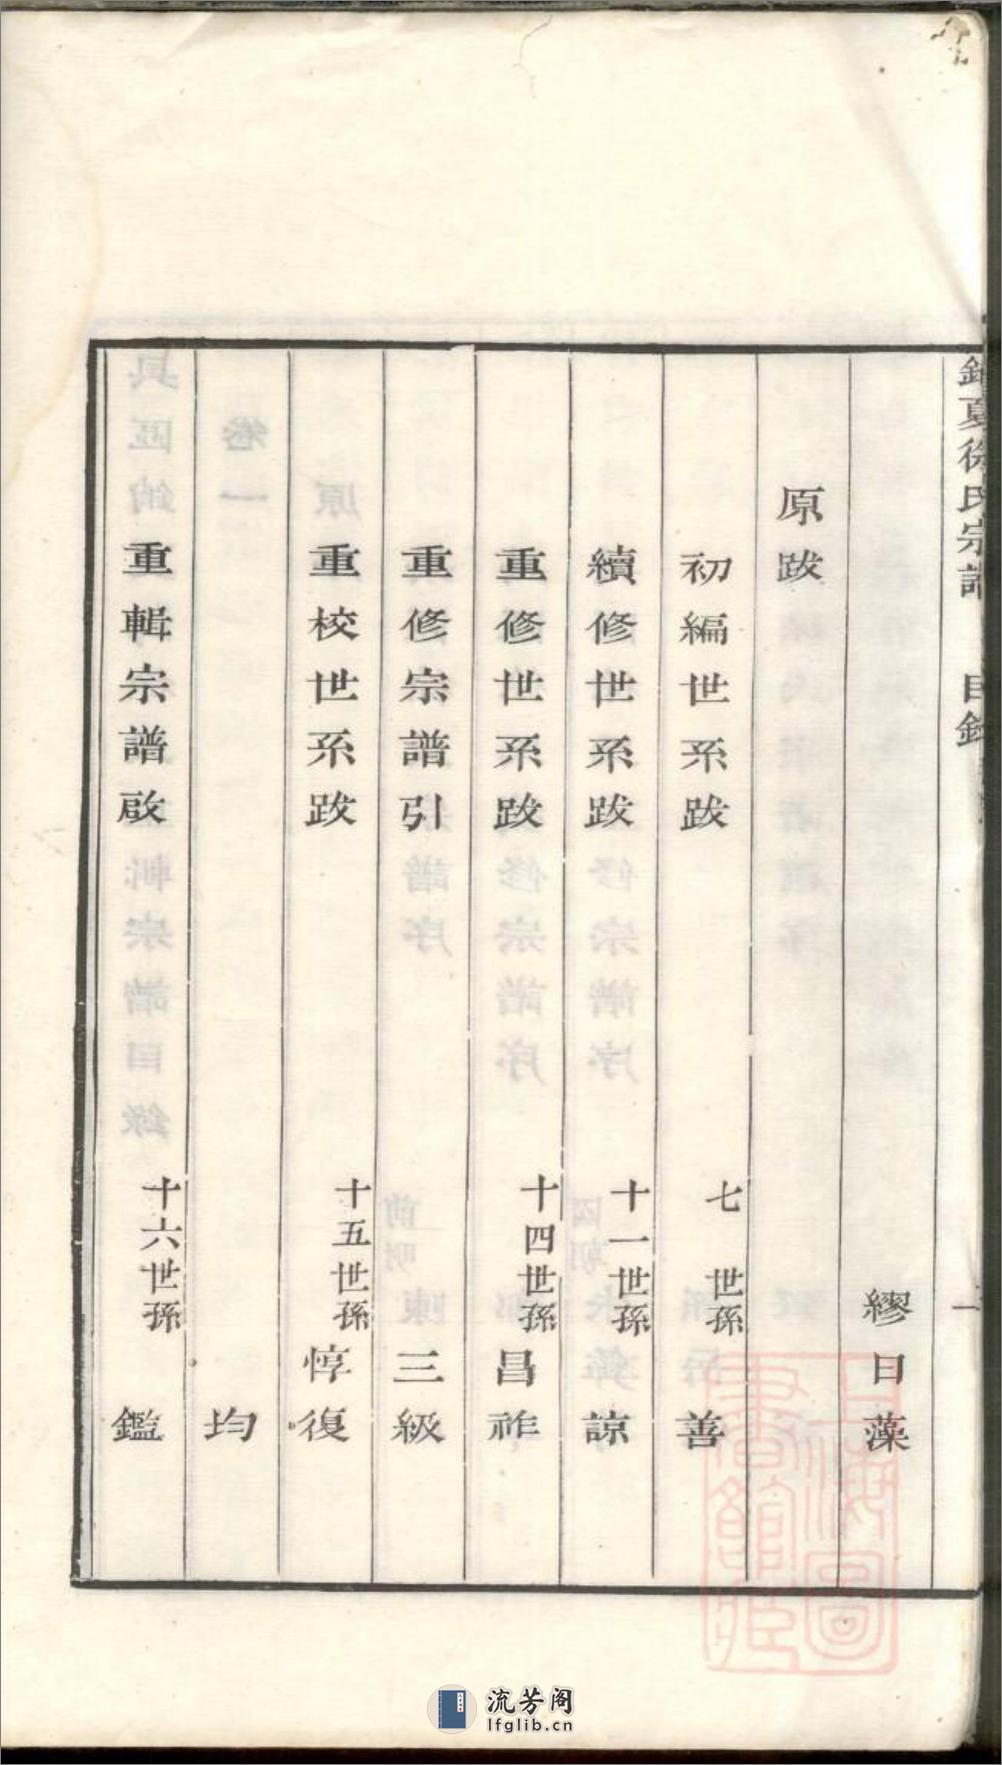 夏徐氏宗譜 目錄 一
繆日藻
原跋
初編世系跋 七世孫 善
續修世系跋 十一世孫 諒
重修世系跋 十四世孫 昌祚
重修宗譜引 三級
重校世系跋 十五世孫 惇復
均
重輯宗譜啟 十六世孫 鑑
上海圖書館藏
流芳阁
lfglib.cn